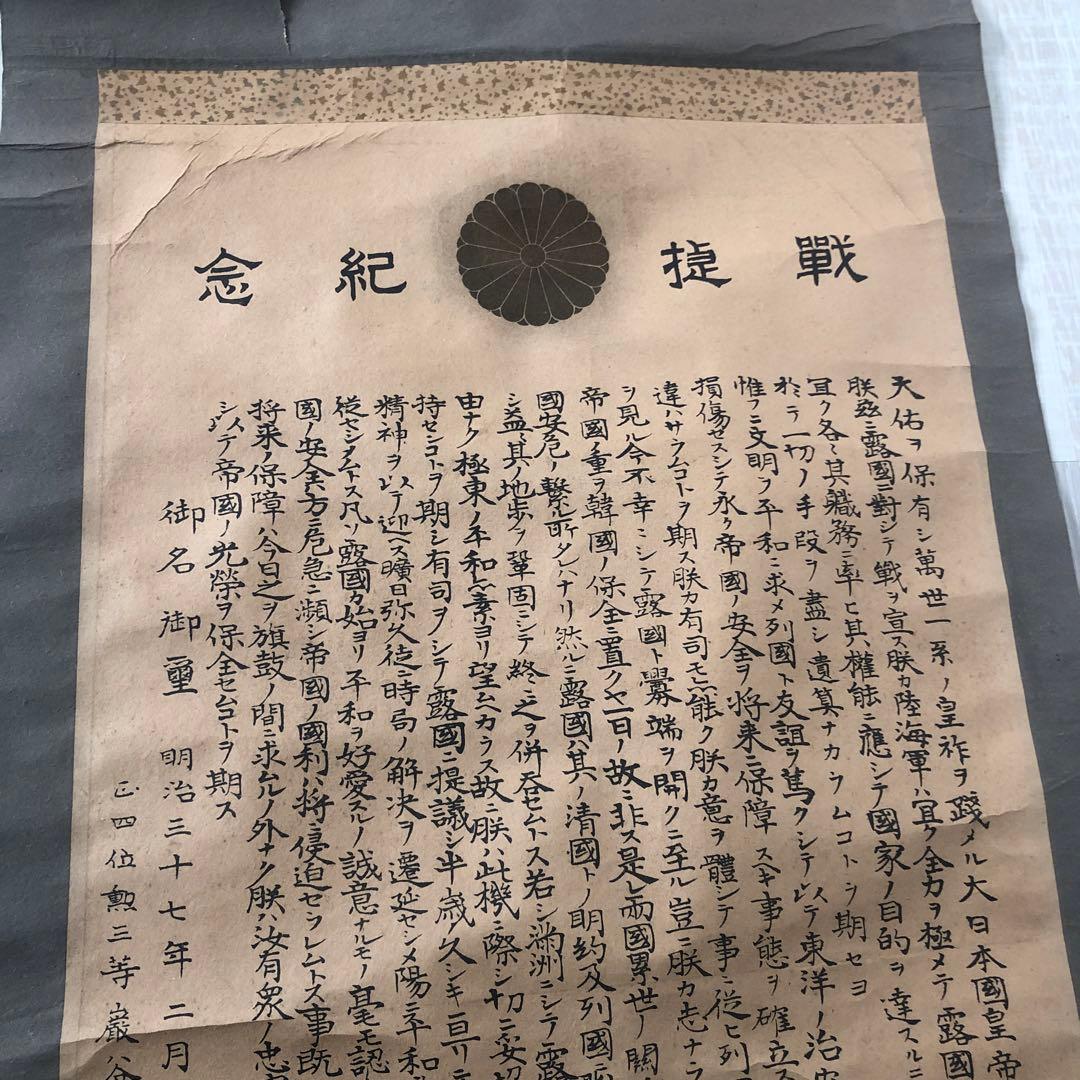 戰捷紀念
天佑ヲ保有シ萬世一系ノ皇祚ヲ踐メル大日本國皇帝
朕茲ニ露國ニ對シテ戰ヲ宣ス朕カ陸海軍ハ宜ク全力ヲ極メテ露國
宜ク各〻其職務ニ率ヒ其權能ニ應シテ國家ノ目的ヲ達スルニ
於テ一切ノ手段ヲ盡シ遺算ナカラムコトヲ期セヨ
惟フニ文明ヲ平和ニ求メ列國ト友誼ヲ篤クシテ以テ東洋ノ治安
損傷セスシテ永ク帝國ノ安全ヲ将来ニ保障スヘキ事態ヲ確立ス
違ハサラムコトヲ期ス朕カ有司モ亦能ク朕カ意ヲ體シテ事ニ從ヒ列
ヲ見ル今不幸ニシテ露國ト釁端ヲ開クニ至ル豈ニ朕カ志ナラ
帝國ノ重ヲ韓國ノ保全ニ置クヤ一日ノ故ニ非ス是レ兩國累世ノ關
國安危ノ繋ル所タレハナリ然ルニ露國ハ其ノ清國トノ明約及列國ニ
シ益〻其ノ地歩ヲ鞏固ニシテ終ニ之ヲ併呑セムトス若シ滿洲ニシテ露
由ナク極東ノ平和亦素ヨリ望ムヘカラス故ニ朕ハ此機ニ際シ切ニ妥
持セムコトヲ期シ有司ヲシテ露國ニ提議シ半歳ノ久シキニ亘リ
精神ヲ以テ迎ヘス曠日弥久徒ニ時局ノ解決ヲ遷延セシメ陽ニ平和
從セシメムトス凡ソ露國カ始ヨリ平和ヲ好愛スルノ誠意ナルモノ毫モ認
國ノ安全方ニ危急ニ瀕シ帝國ノ國利ハ將ニ侵迫セラレムトス事既
将来ノ保障ハ今日之ヲ旗鼓ノ間ニ求ムルノ外ナク朕ハ汝有衆ノ忠
シ以テ帝國ノ光榮ヲ保全セムコトヲ期ス
御名御璽
明治三十七年二月
正四位勲三等巌谷